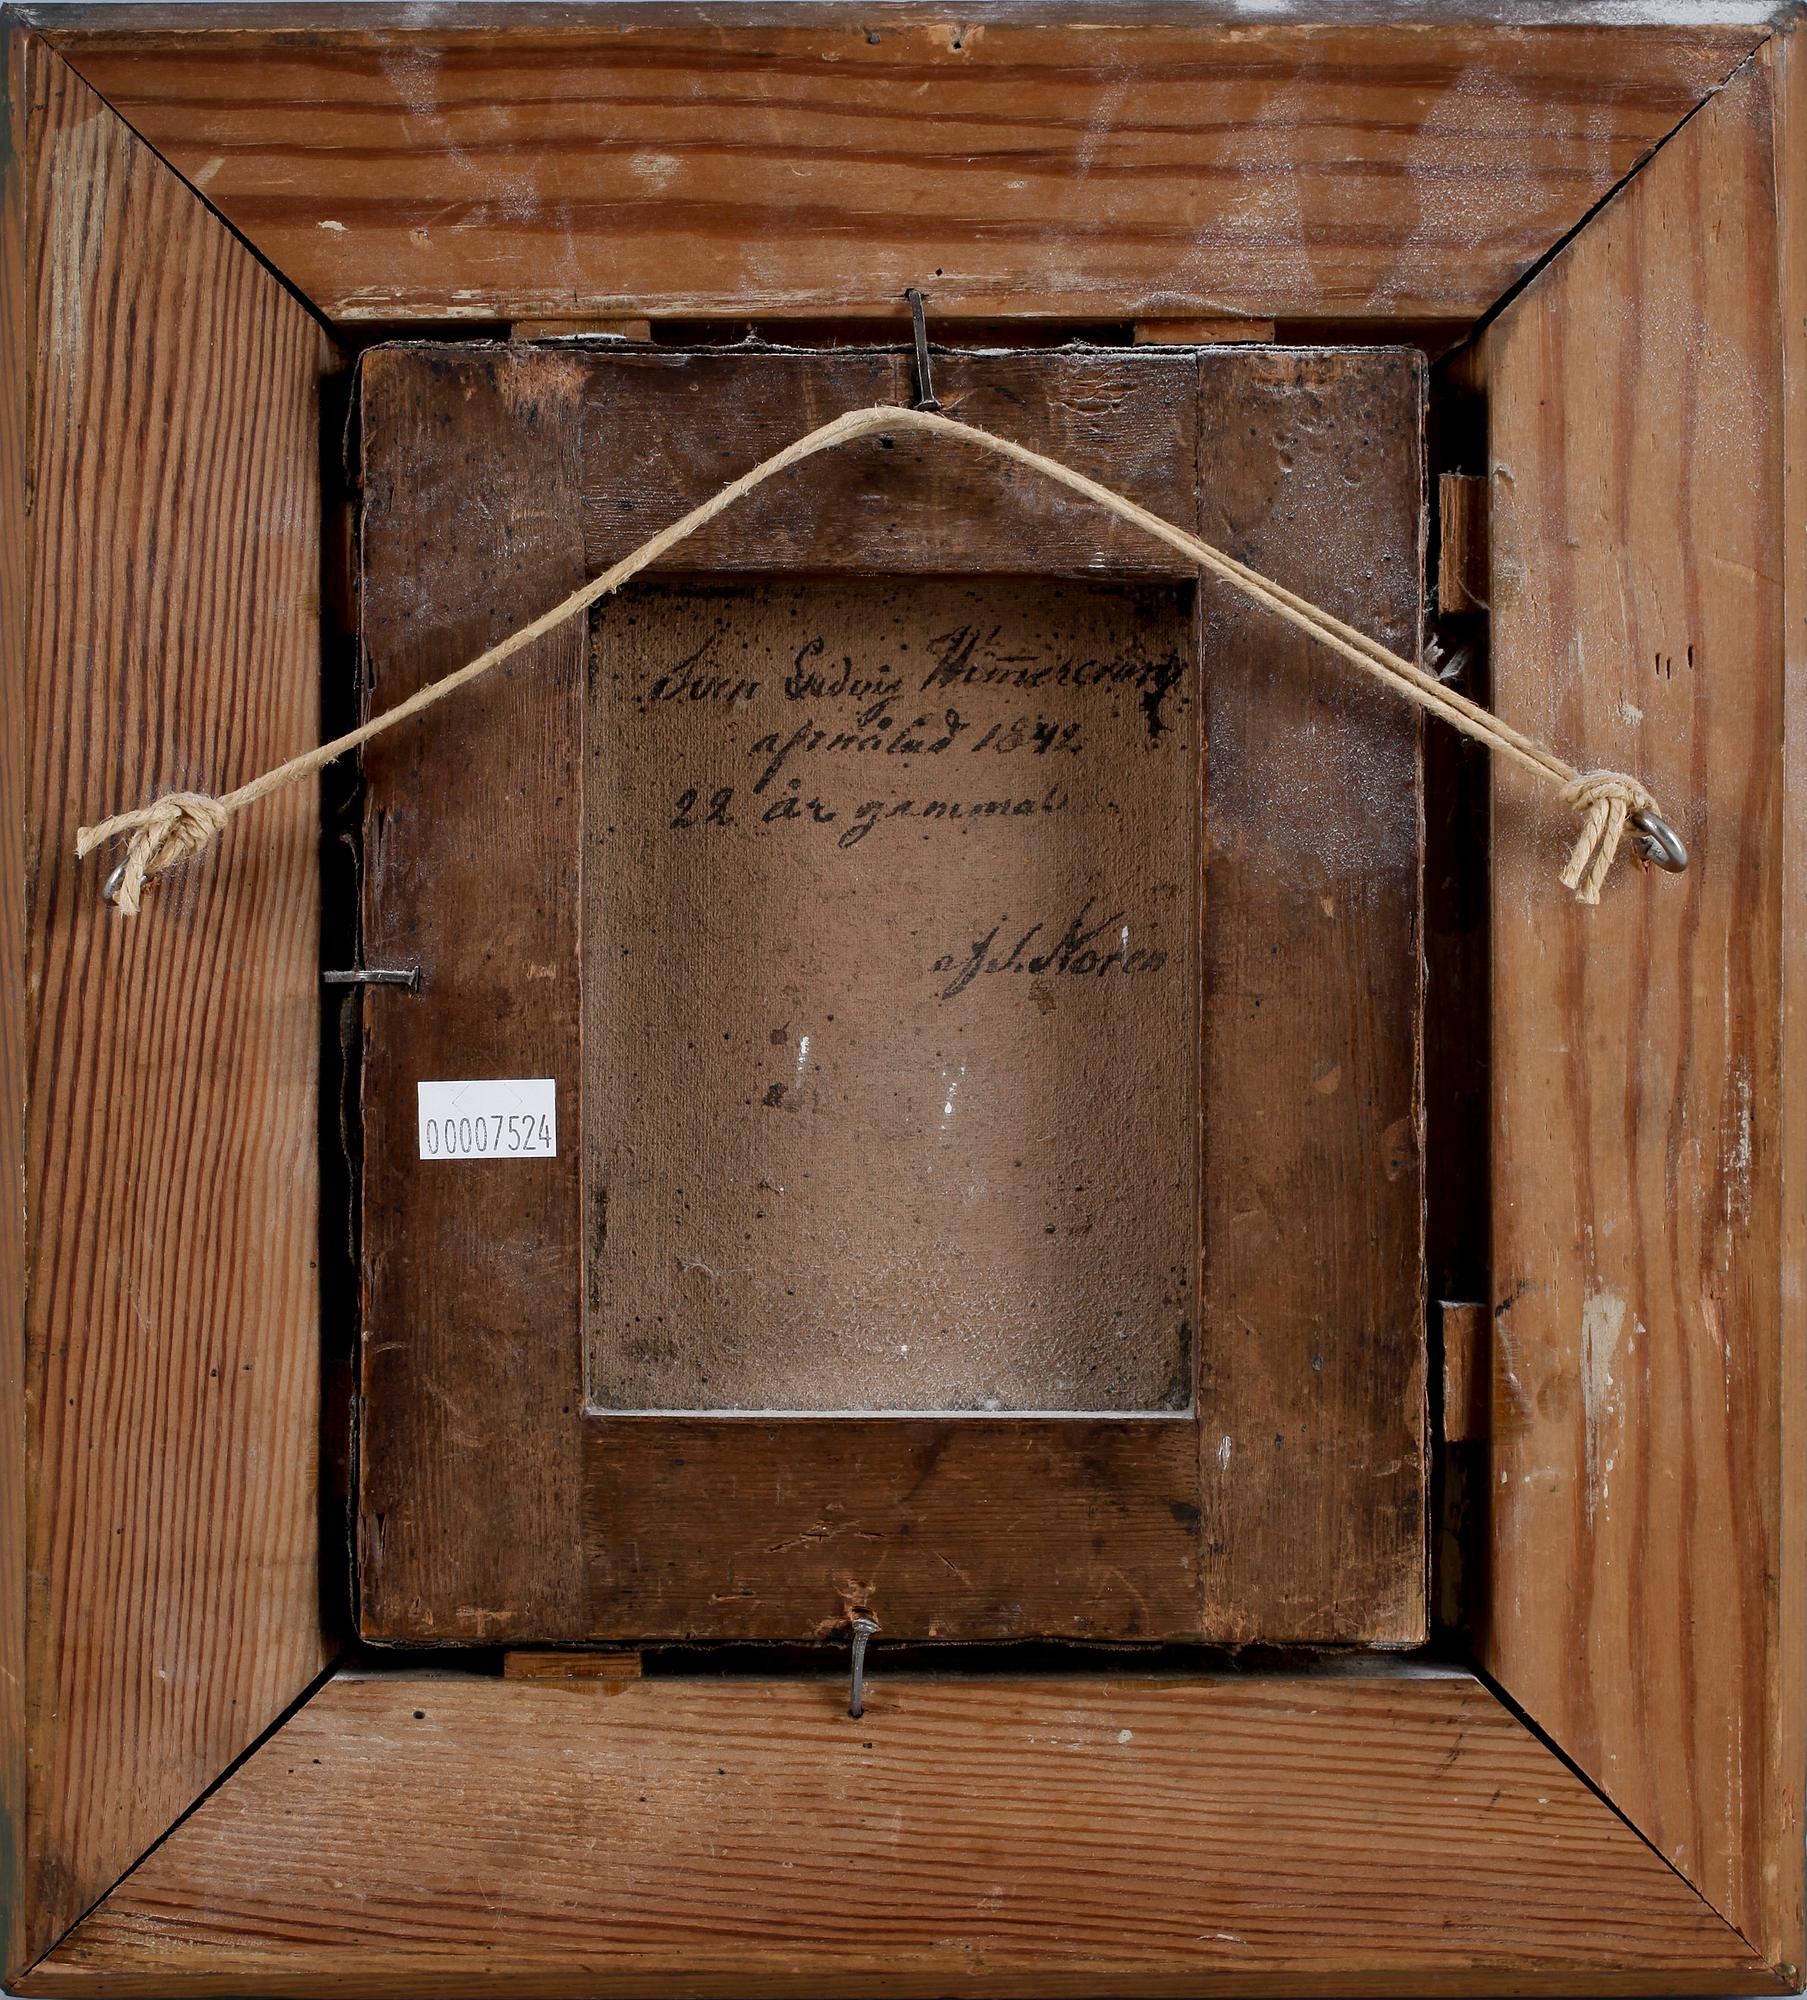 Sven Ludvig Wim̅ercranz
afmålad 1842.
22 år gammal
af J. Norén
00007524